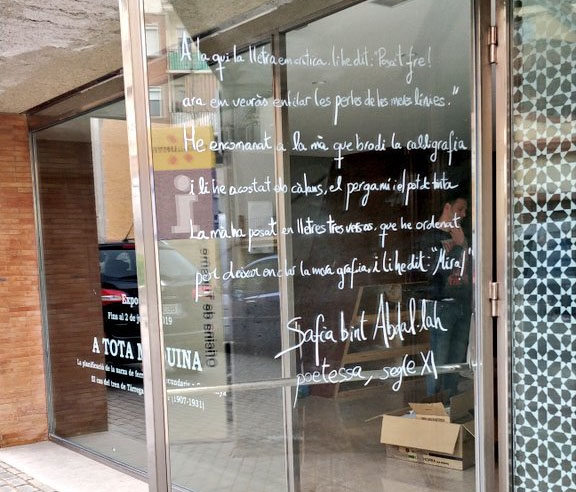 A la qui la lletra em critica. li he dit: "Posa't fre!
ara em veuràs enfilar les perles de les meves línies."
He encomanat a la mà que brodi la cal·ligrafia
i li he acostat els càlams, el pergamí i el pot de tinta
La mà ha posat en lletres tres versos, que he ordenat
per deixar en clar la meva grafia, i li he dit: "Mira!"
Safia bint Abdal·lah
poetessa, segle XI
i
Oficina de turisme
Expo
Fins al 2 de j 2019
A TOTA M QUINA
La planificació de la xarxa de ferro secundaris a
El cas del tren de Tàrrega (1907-1931)